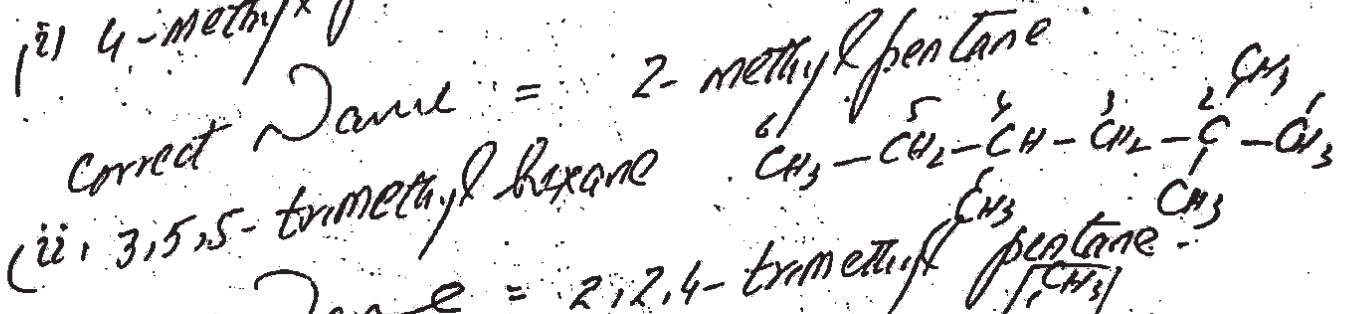 (i) 4-methyl
correct Name = 2-methyl pentane
CH3
6 5 4 3 2 1
(ii, 3,5,5-trimethyl hexane CH3 – CH2 – CH – CH2 – C – CH3
CH3 CH3
Name = 2,2,4-trimethyl pentane
CH3